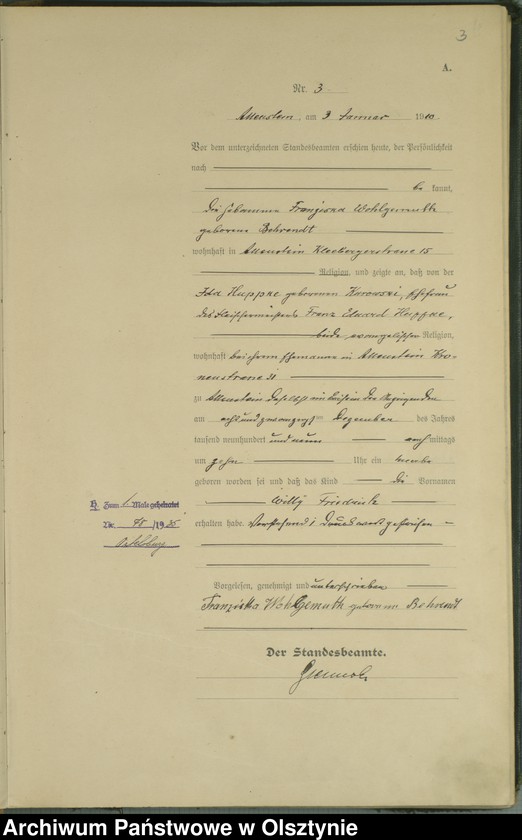 3
A.
Nr. 3
Allenstein, am 3 Januar 1910.
Vor dem unterzeichneten Standesbeamten erschien heute, der Persönlichkeit
nach
be kannt,
die Hebamme Franziska Wohlgemuth
geborene Behrendt
wohnhaft in Allenstein Kleebergerstrasse 15
Religion, und zeigte an, daß von der
Ida Huppke geborenen Kurowski, Ehefrau
des Fleischermeisters Franz Eduard Huppke,
beide evangelischer Religion,
wohnhaft bei ihrem Ehemanne in Allenstein Kro-
nenstrasse 31
zu Allenstein daselbst in
am acht und zwanzigsten Dezember des Jahres
tausend neunhundert und neun nach mittags
um zehn Uhr ein Knabe
geboren worden sei und daß das Kind die Vornamen
Willy Friedrich
erhalten habe. Vorstehend 1 Druckwort gestrichen
H. Zum 1. Male geheiratet
Nr. 48/1935
Vorgelesen, genehmigt und unterschrieben
Franziska Wohlgemuth geborene Behrendt
Der Standesbeamte.
Archiwum Państwowe w Olsztynie